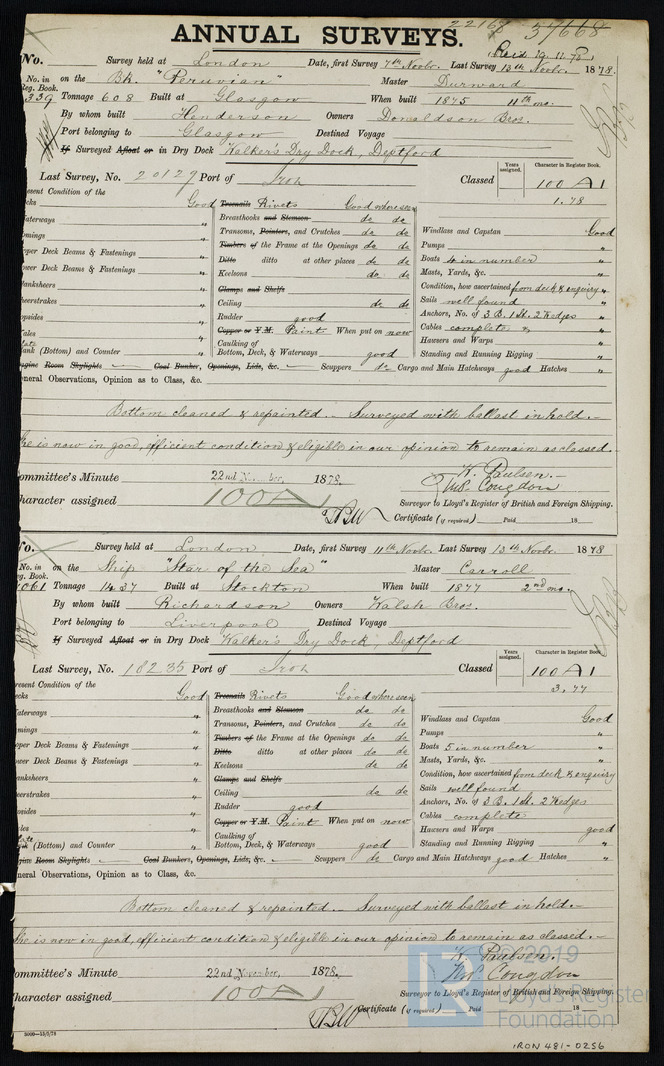 22168 37668
ANNUAL SURVEYS.
No. Survey held at London Date, first Survey 7th Novbr. Last Survey 13th Novbr. 1878.
No. in on the Bk. "Peruvian" Master Durward
Reg. Book.
339 Tonnage 608 Built at Glasgow When built 1875 11th mo.
By whom built Henderson Owners Donaldson Bros.
Port belonging to Glasgow Destined Voyage
If Surveyed Afloat or in Dry Dock Walker's Dry Dock, Deptford
Years assigned. Character in Register Book.
Last Survey, No. 20129 Port of Iron Classed 100 A 1
1.78
esent Condition of the
cks Good Treenails Rivets Good where seen
aterways " Breasthooks and Stemson do do Windlass and Capstan Good
mings " Transoms, Pointers, and Crutches do do Pumps "
pper Deck Beams & Fastenings " Timbers of the Frame at the Openings do do Boats 4 in number "
ower Deck Beams & Fastenings " Ditto ditto at other places do do Masts, Yards, &c. "
lanksheers " Keelsons do do Condition, how ascertained from deck & enquiry
heerstrakes " Clamps and Shelfs Sails well found "
opsides " Ceiling do do Anchors, No. of 3 B. 1 St. 2 Kedges "
ales " Rudder good Cables complete "
lank (Bottom) and Counter " Copper or Y.M. Paint When put on now Hawsers and Warps "
Caulking of Bottom, Deck, & Waterways good Standing and Running Rigging "
ngine Room Skylights Coal Bunker, Openings, Lids, &c. Scuppers do Cargo and Main Hatchways good Hatches "
neral Observations, Opinion as to Class, &c.
Bottom cleaned & repainted. — Surveyed with ballast in hold. —
She is now in good, efficient condition & eligible in our opinion to remain as classed.
W. Paulsen. —
ommittee's Minute 22nd November, 1878. Wm. Congdon
haracter assigned 100 A Surveyor to Lloyd's Register of British and Foreign Shipping.
Certificate (if required) Paid 18
No. Survey held at London. Date, first Survey 11th Novbr. Last Survey 13th Novbr. 1878
No. in on the Ship "Star of the Sea" Master Carroll
eg. Book.
1061 Tonnage 1437 Built at Stockton When built 1877 2nd mo.
By whom built Richardson Owners Walsh Bros.
Port belonging to Liverpool Destined Voyage
If Surveyed Afloat or in Dry Dock Walker's Dry Dock, Deptford
Years assigned. Character in Register Book.
Last Survey, No. 18235 Port of Iron Classed 100 A 1
3.77
resent Condition of the
ecks Good Treenails Rivets Good where seen
aterways " Breasthooks and Stemson do do Windlass and Capstan Good
mings " Transoms, Pointers, and Crutches do do Pumps "
pper Deck Beams & Fastenings " Timbers of the Frame at the Openings do do Boats 5 in number "
wer Deck Beams & Fastenings " Ditto ditto at other places do do Masts, Yards, &c. "
anksheers " Keelsons do do Condition, how ascertained from deck & enquiry
eerstrakes " Clamps and Shelfs Sails well found
psides " Ceiling do do Anchors, No. of 3 B. 1 St. 2 Kedges
ales " Rudder good Cables complete
(Bottom) and Counter " Copper or Y.M. Paint When put on now Hawsers and Warps good
Caulking of Bottom, Deck, & Waterways good Standing and Running Rigging "
gine Room Skylights Coal Bunkers, Openings, Lids, &c. Scuppers do Cargo and Main Hatchways good Hatches "
neral Observations, Opinion as to Class, &c.
Bottom cleaned & repainted. — Surveyed with ballast in hold. —
She is now in good, efficient condition & eligible in our opinion to remain as classed. —
W. Paulsen.
ommittee's Minute 22nd November, 1878. Wm. Congdon
haracter assigned 100 A Surveyor to Lloyd's Register of British and Foreign Shipping.
Certificate (if required) Paid 18
© 2019
Lloyd's Register
Foundation
IRON 481-0256